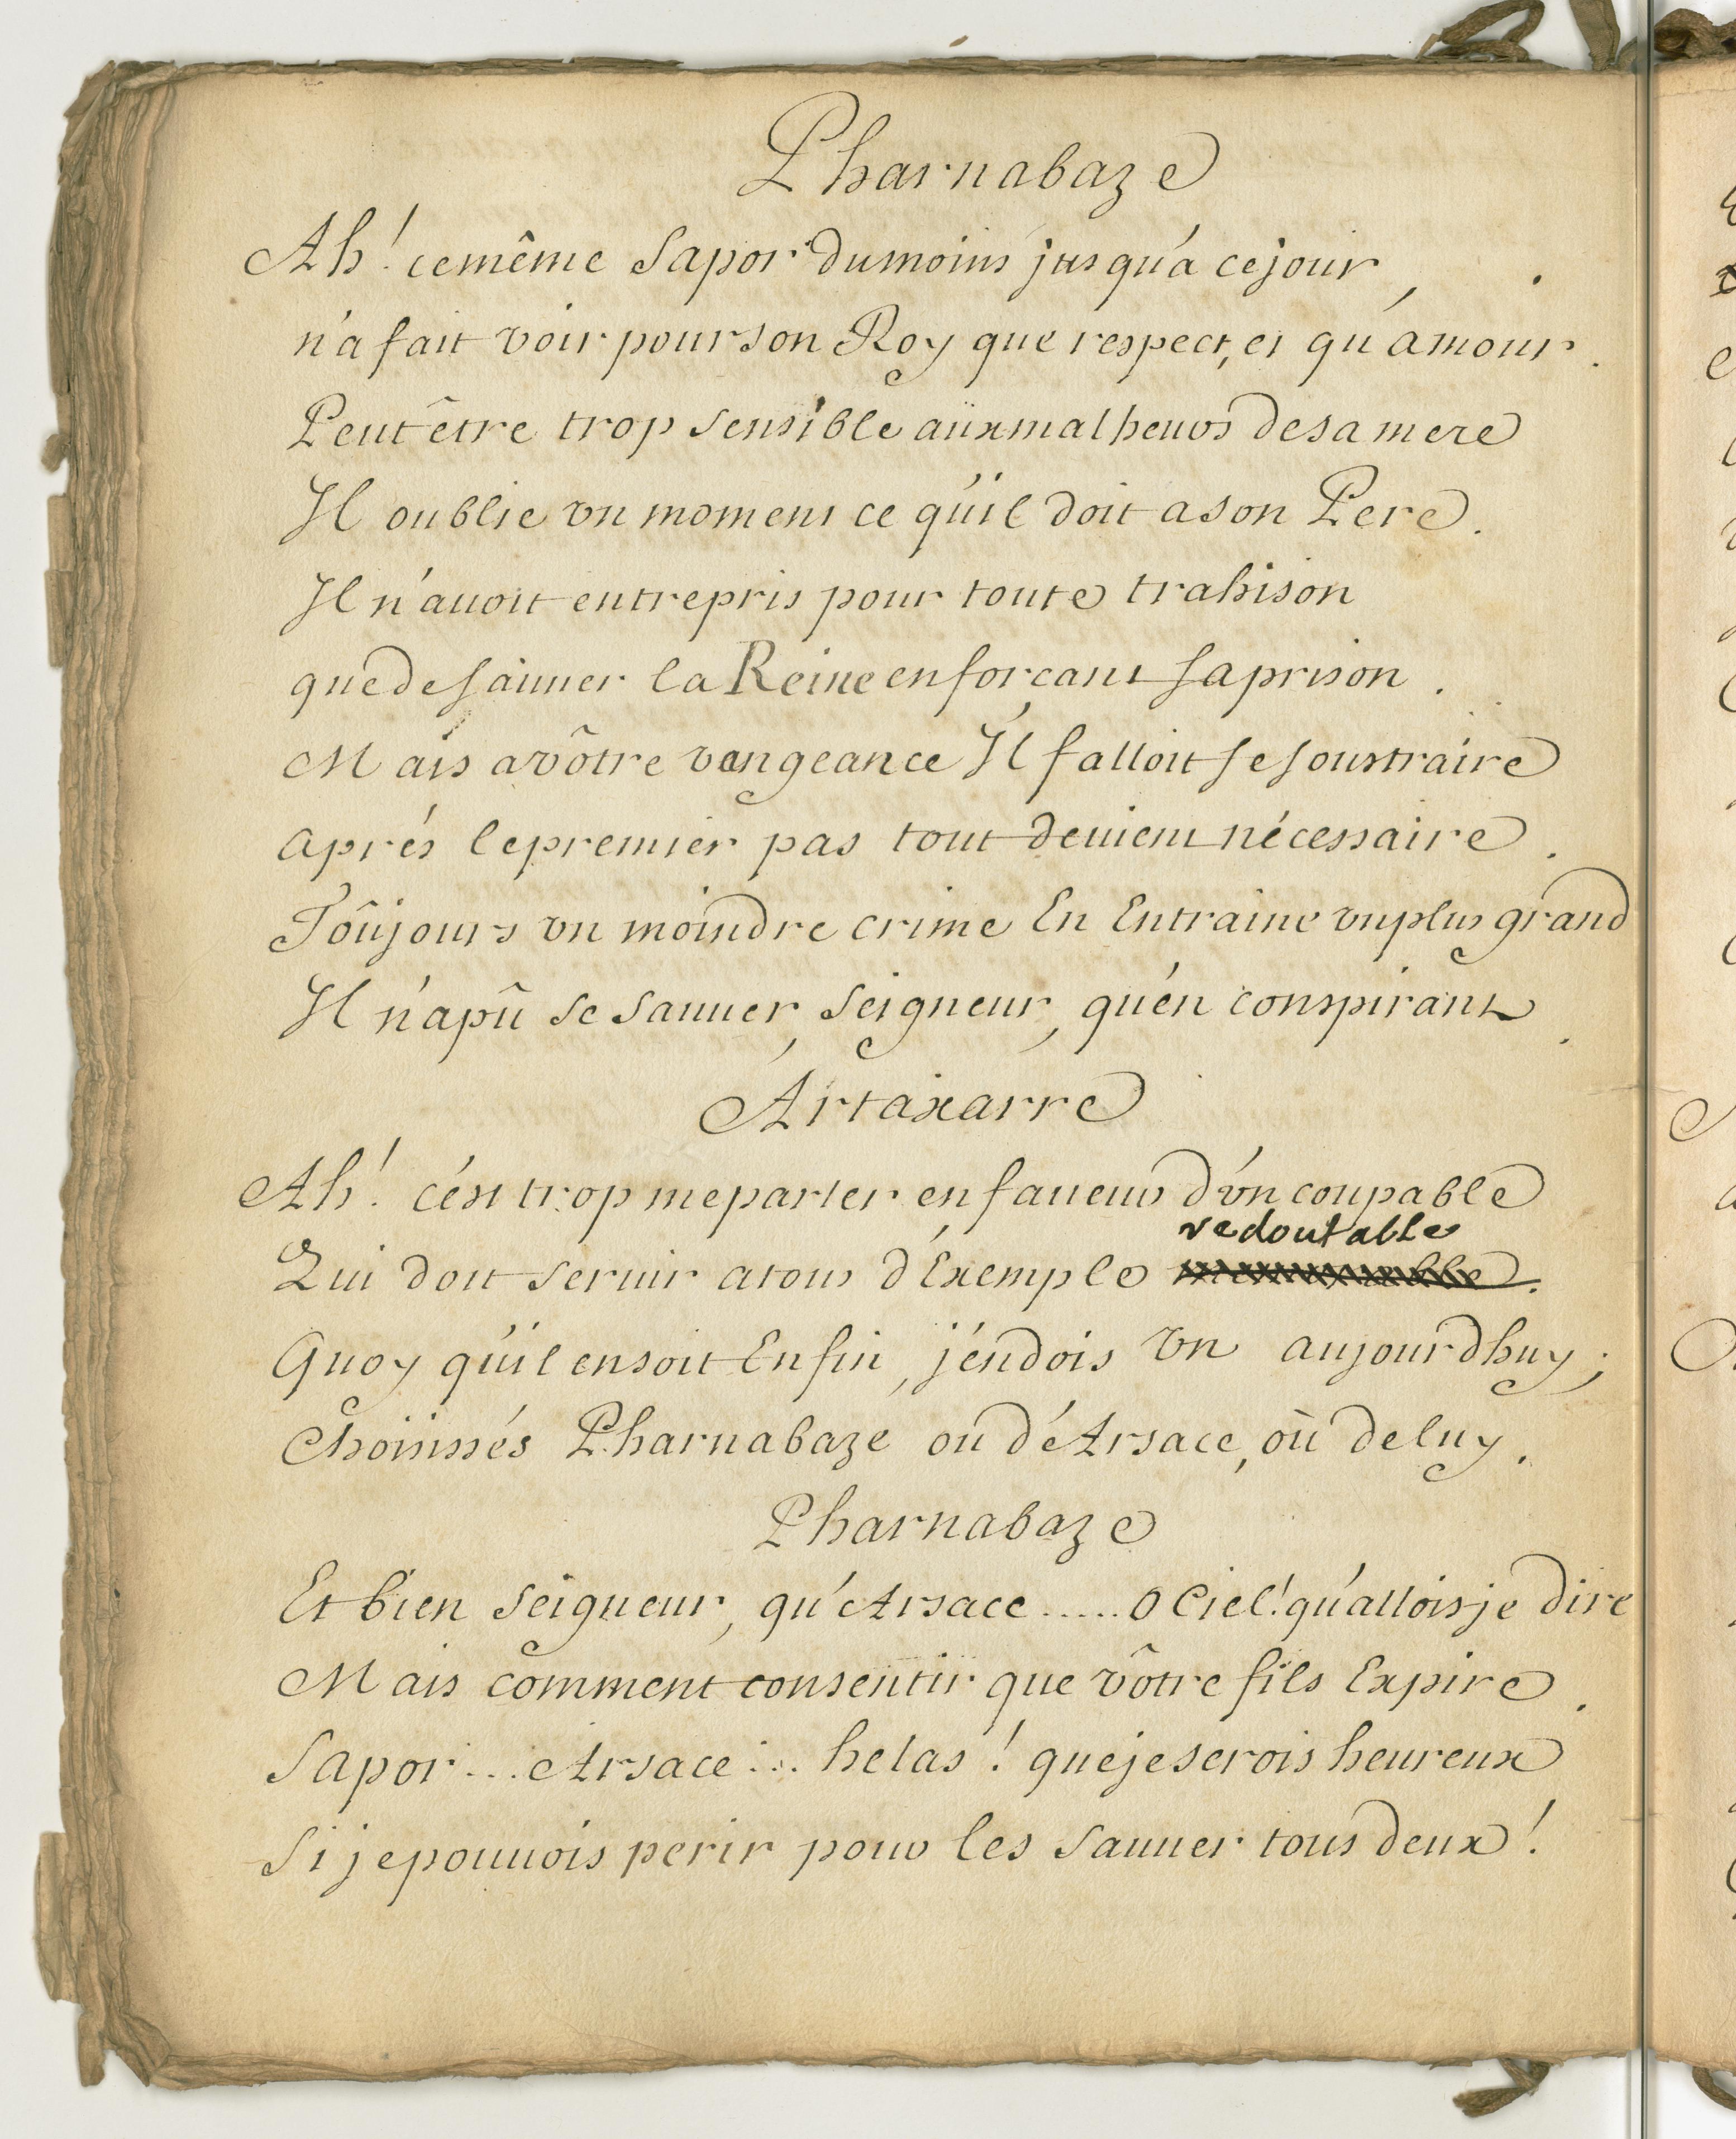 Pharnabaze
Ah! ce même Sapor du moins jusqu'à ce jour,
n'a fait voir pour son Roy que respect, et qu'amour.
Peut être trop sensible aux malheurs de sa mere
Il oublie un moment ce qu'il doit a son Pere.
Il n'auoit entrepris pour toute trahison
que de sauuer la Reine en forçant sa prison.
Mais a vôtre vangeance Il falloit se soustraire
aprés le premier pas tout deuient nécessaire.
Toûjours un moindre crime En Entraine un plus grand
Il n'a pû se sauuer, Seigneur, qu'en conspirant.
Artaxarre
Ah! c'est trop me parler en faueur d'un coupable
redoutable
Qui doit seruir a tous d'Exemple
Quoy qu'il en soit Enfin, j'en dois un aujourdhuy;
Choisissés Pharnabaze ou d'Arsace, où de luy.
Pharnabaze
Et bien Seigneur, qu'Arsace ..... O Ciel! qu'allois je dire
Mais comment consentir que vôtre fils Expire.
Sapor ... Arsace ... helas! que je serois heureux
Si je pouuois perir pour les sauuer tous deux!